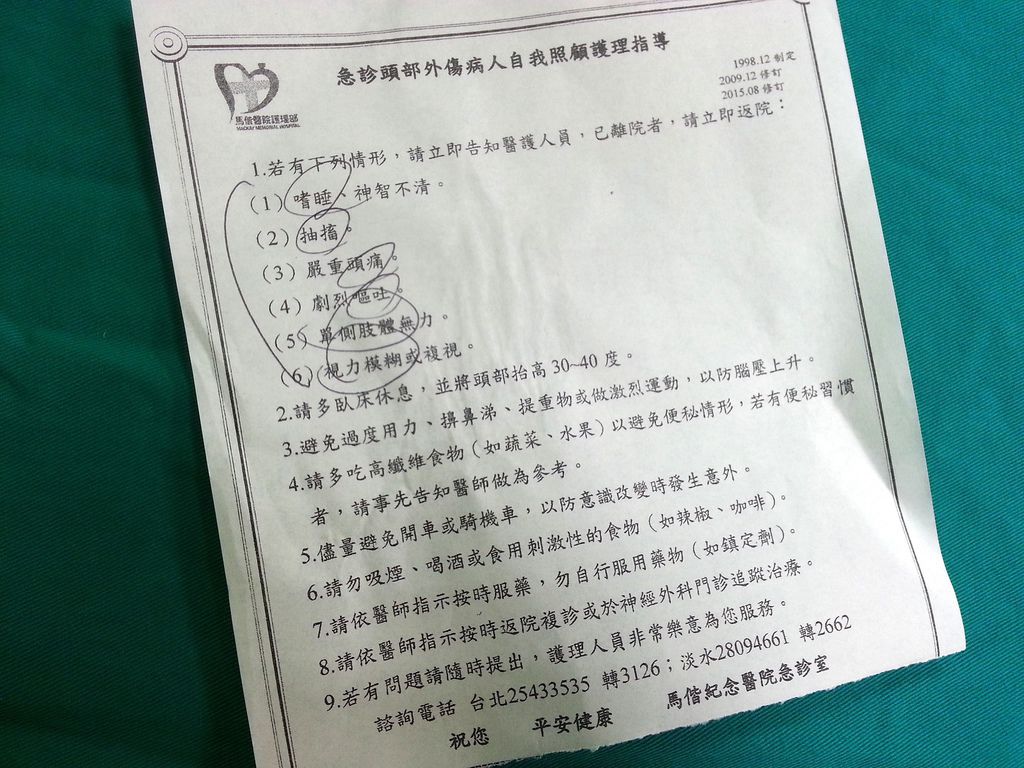 急診頭部外傷病人自我照顧護理指導
馬偕醫院護理部
MACKAY MEMORIAL HOSPITAL
1998.12 制定
2009.12 修訂
2015.08 修訂
1.若有下列情形，請立即告知醫護人員，已離院者，請立即返院：
(1) 嗜睡、神智不清。
(2) 抽搐。
(3) 嚴重頭痛。
(4) 劇烈嘔吐。
(5) 單側肢體無力。
(6) 視力模糊或複視。
2.請多臥床休息，並將頭部抬高30~40度。
3.避免過度用力、擤鼻涕、提重物或做激烈運動，以防腦壓上升。
4.請多吃高纖維食物（如蔬菜、水果）以避免便秘情形，若有便秘習慣
者，請事先告知醫師做為參考。
5.儘量避免開車或騎機車，以防意識改變時發生意外。
6.請勿吸煙、喝酒或食用刺激性的食物（如辣椒、咖啡）。
7.請依醫師指示按時服藥，勿自行服用藥物（如鎮定劑）。
8.請依醫師指示按時返院複診或於神經外科門診追蹤治療。
9.若有問題請隨時提出，護理人員非常樂意為您服務。
諮詢電話 台北25433535 轉3126；淡水28094661 轉2662
祝您 平安健康 馬偕紀念醫院急診室